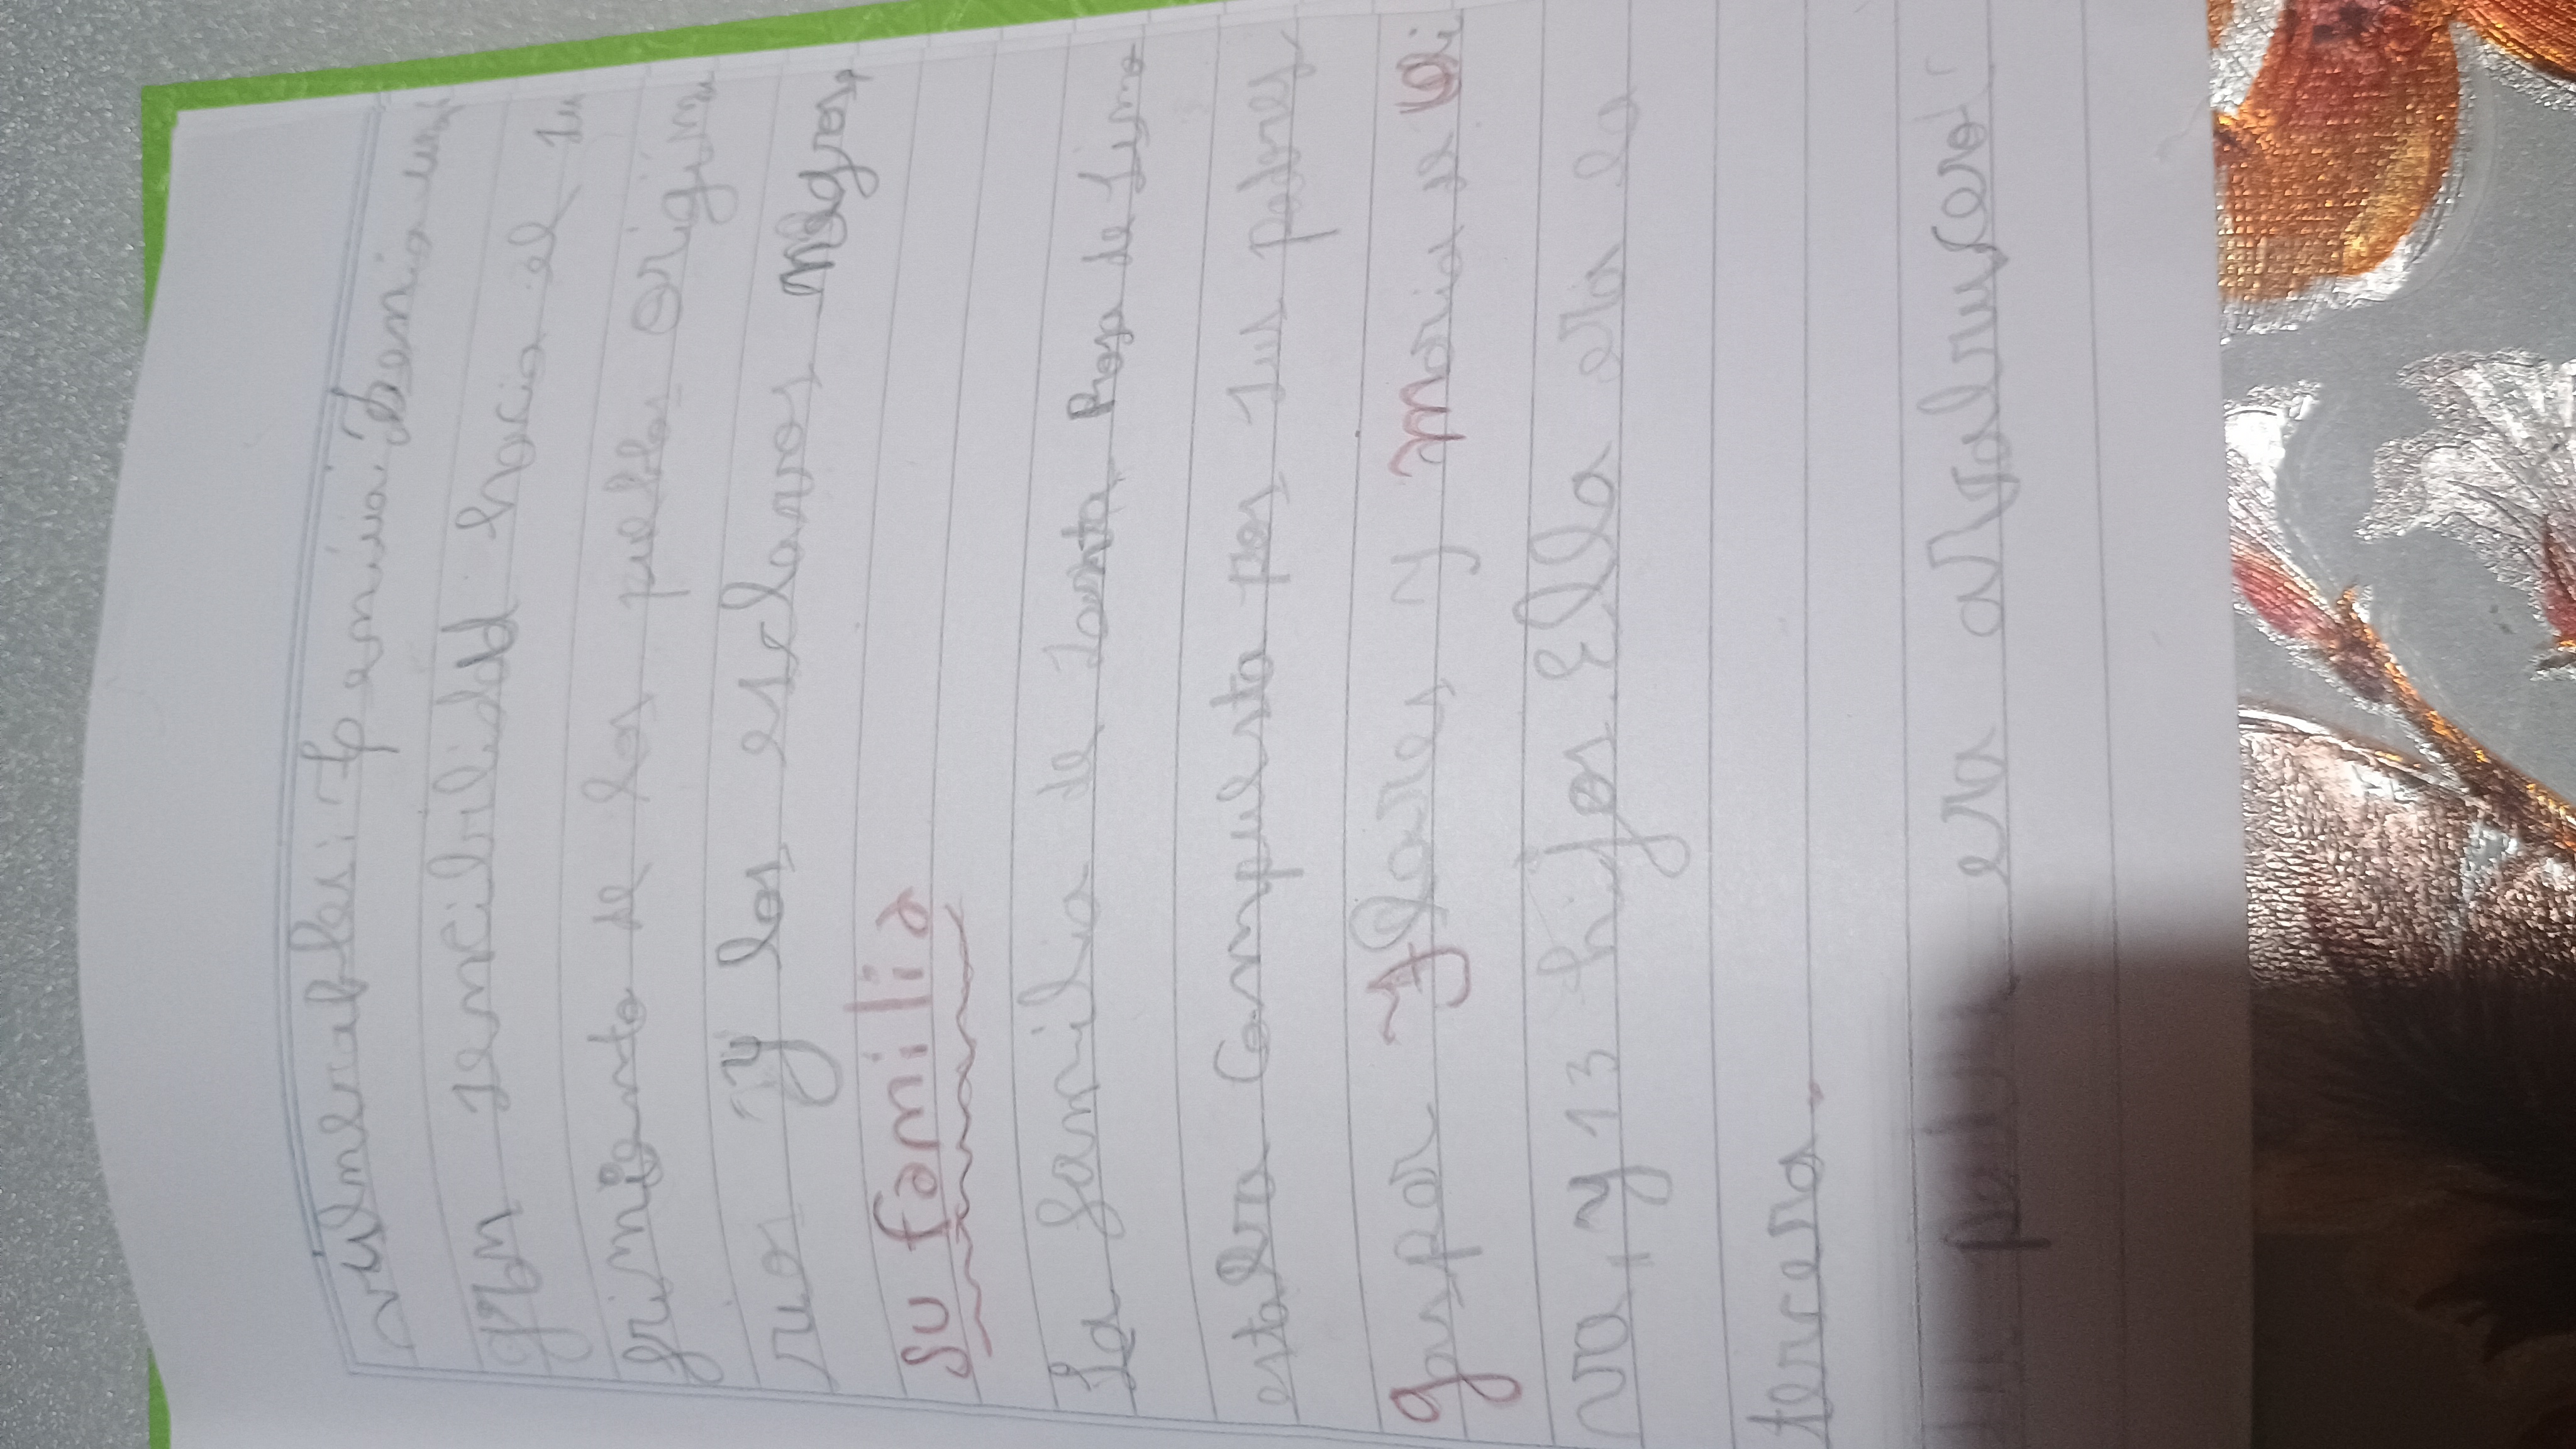 vulnerables: tenia tenia una
gran sencibilidad hacia el su
frimiento de los pueblos origina
rios y los esclavos Negros
su familia
La familia de santa Rosa de Lima
estaba Compuesta por sus padres
gaspar Flores y Maria de Oli
va, y 13 hijos Ella era la
tercera.
su padre era arcabucero